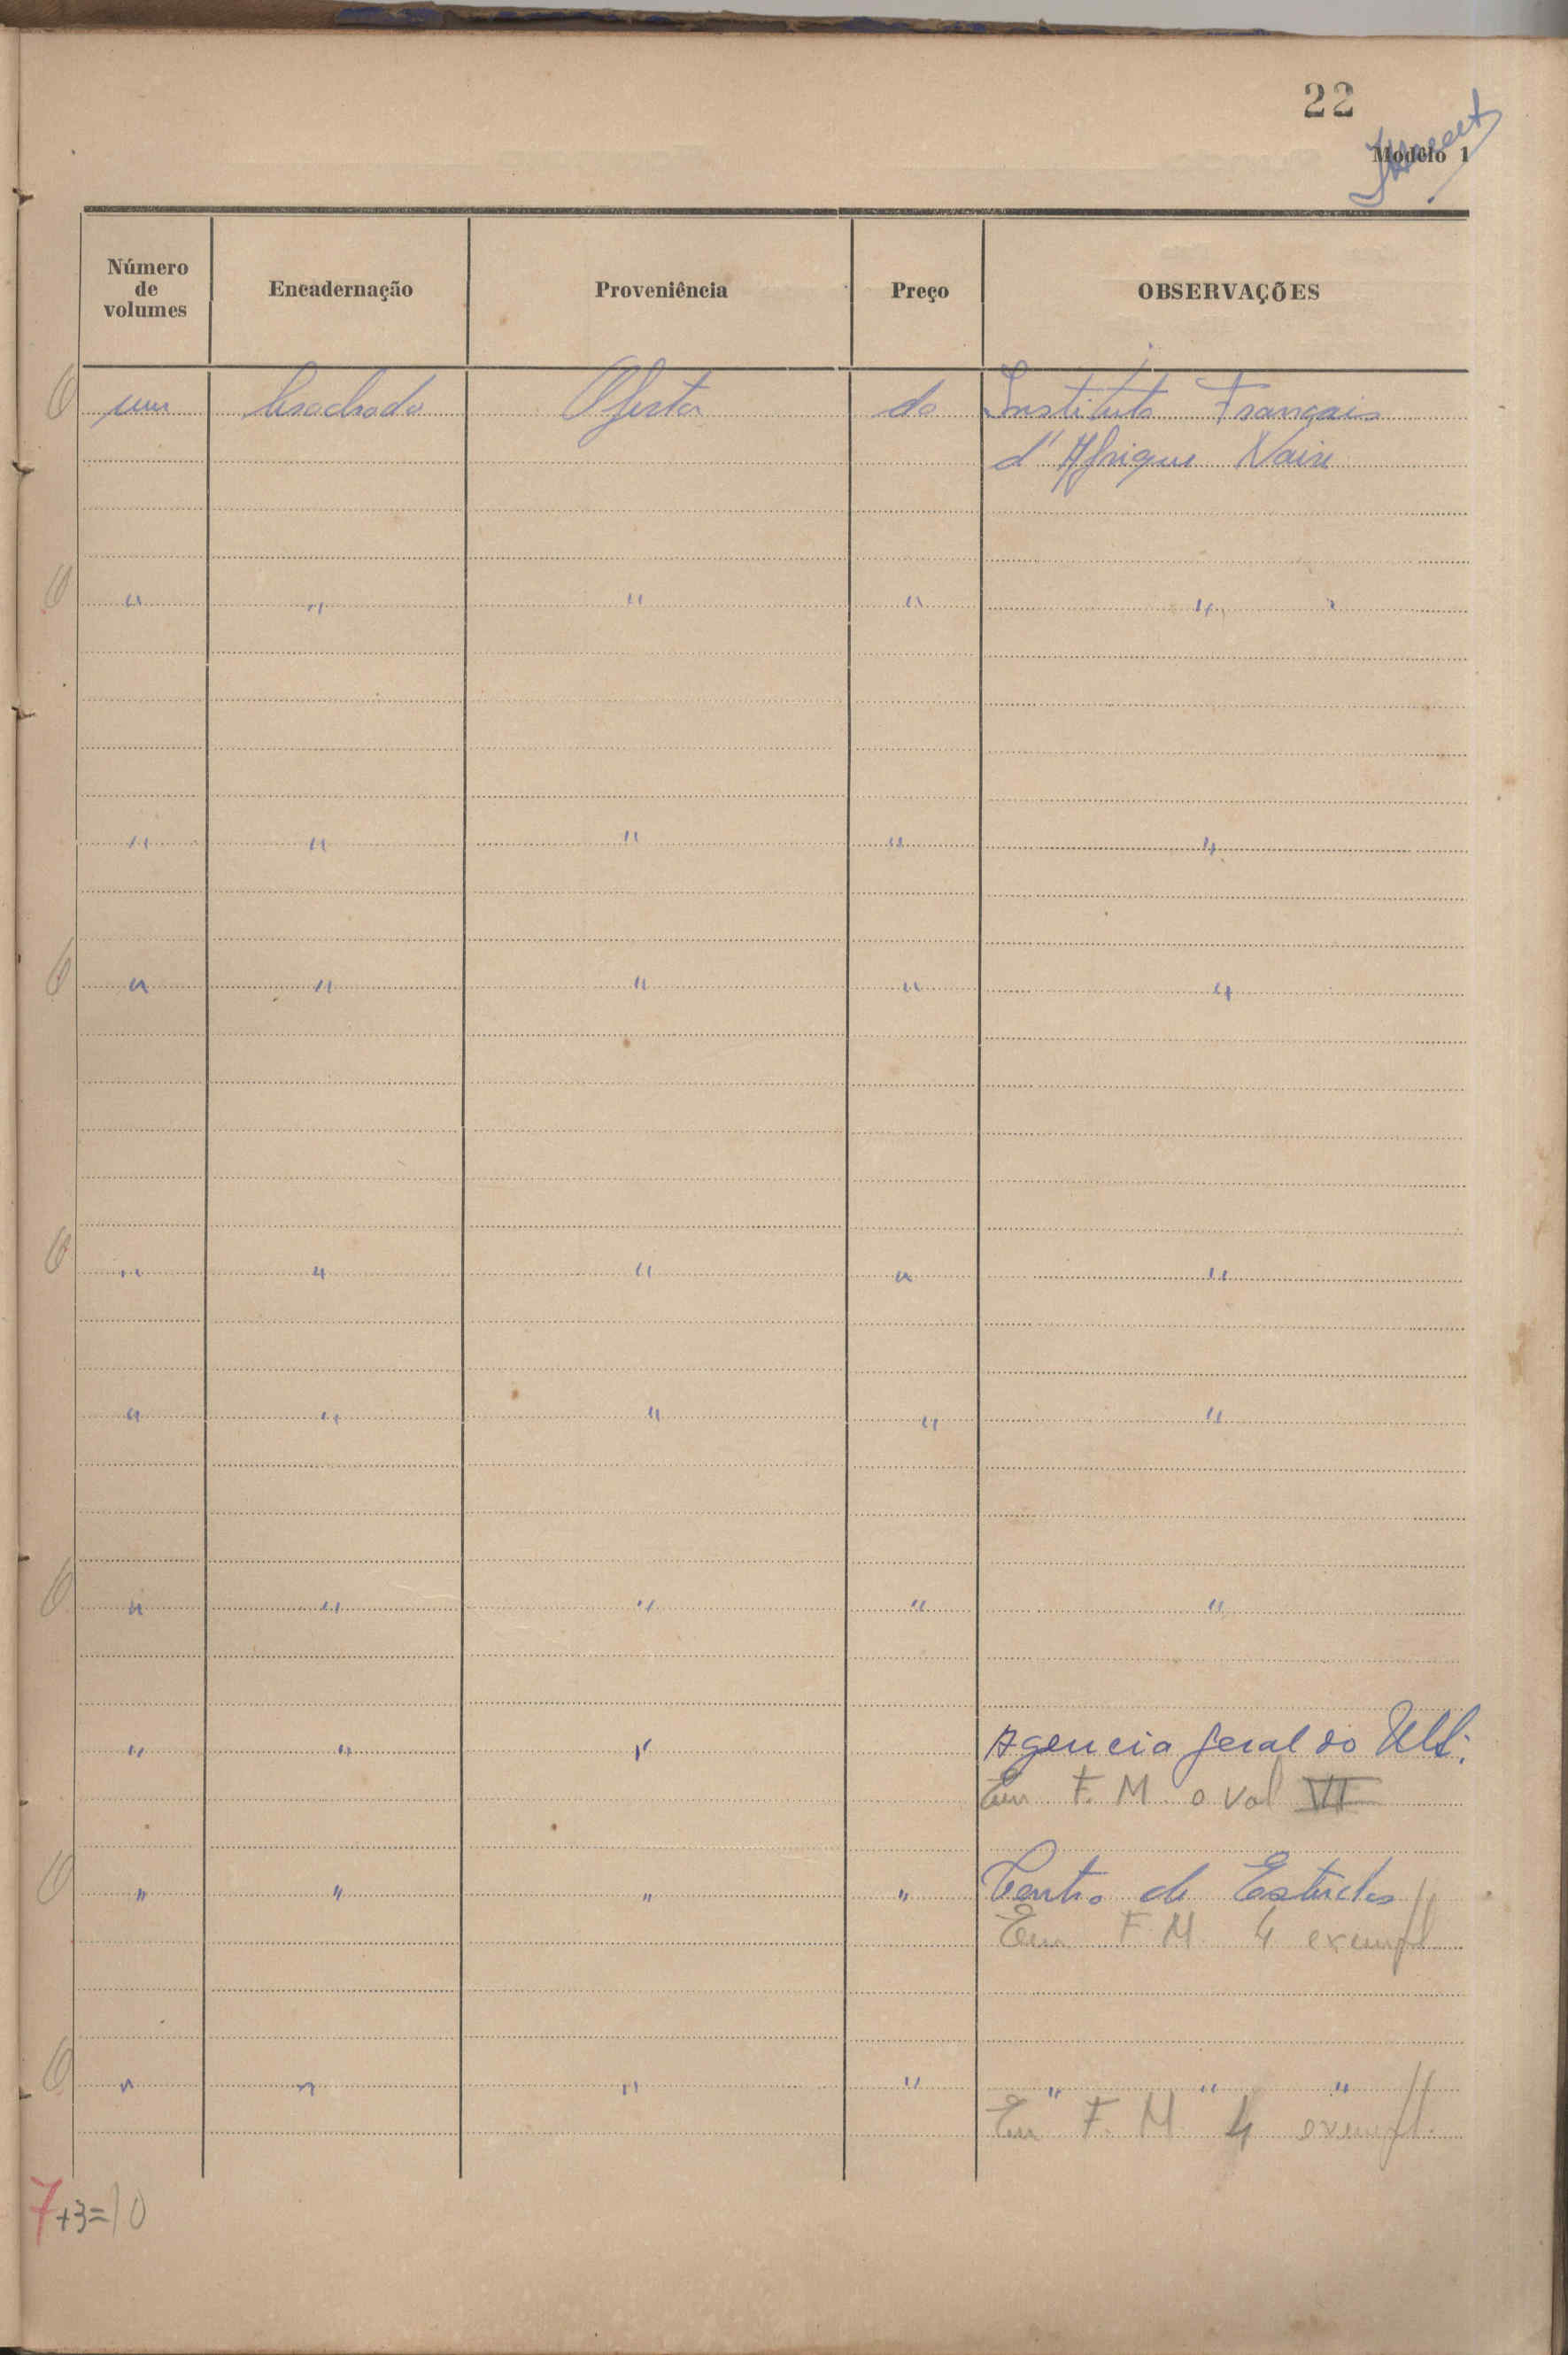 22
Modêlo 1
Número de volumes Encadernação Proveniência Preço OBSERVAÇÕES
um brochado Oferta do Instituto Français
d'Afrique Noire
" " " " "
" " " " "
" " " " "
" " " " "
" " " " "
" " " " "
" " " Agencia geral do Ult.
Em F. M. o vol VII
" " " " Centro de Estudos //
Em F M 4 exempl
" " " " " " " //
Em F. M. 4 exempl.
7+3=10